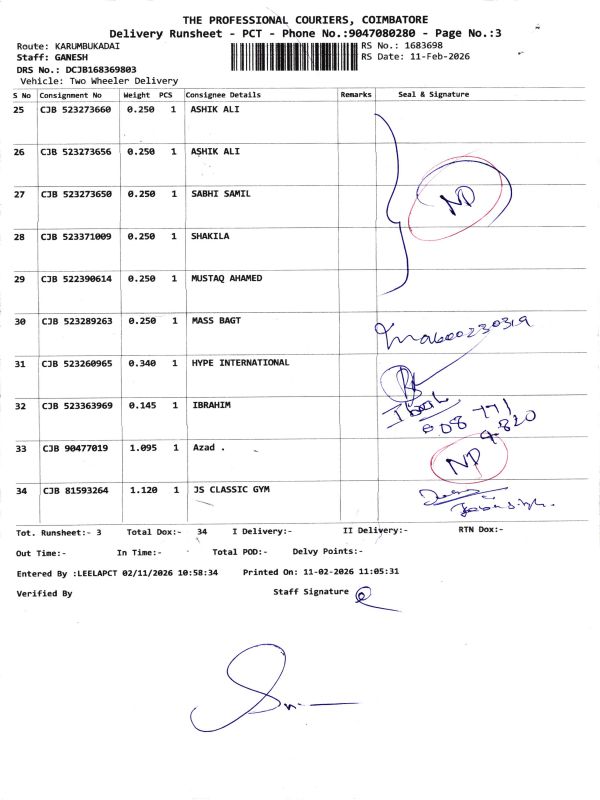 THE PROFESSIONAL COURIERS, COIMBATORE
Delivery Runsheet - PCT - Phone No.:9047080280 - Page No.:3
Route: KARUMBUKADAI
RS No.: 1683698
Staff: GANESH
RS Date: 11-Feb-2026
DRS No.: DCJB168369803
Vehicle: Two Wheeler Delivery
S No Consignment No Weight PCS Consignee Details Remarks Seal & Signature
25 CJB 523273660 0.250 1 ASHIK ALI
26 CJB 523273656 0.250 1 ASHIK ALI
27 CJB 523273650 0.250 1 SABHI SAMIL NP
28 CJB 523371009 0.250 1 SHAKILA
29 CJB 522390614 0.250 1 MUSTAQ AHAMED
30 CJB 523289263 0.250 1 MASS BAGT
31 CJB 523260965 0.340 1 HYPE INTERNATIONAL
32 CJB 523363969 0.145 1 IBRAHIM
33 CJB 90477019 1.095 1 Azad . NP
34 CJB 81593264 1.120 1 JS CLASSIC GYM
Tot. Runsheet:- 3 Total Dox:- 34 I Delivery:- II Delivery:- RTN Dox:-
Out Time:- In Time:- Total POD:- Delvy Points:-
Entered By :LEELAPCT 02/11/2026 10:58:34 Printed On: 11-02-2026 11:05:31
Verified By Staff Signature